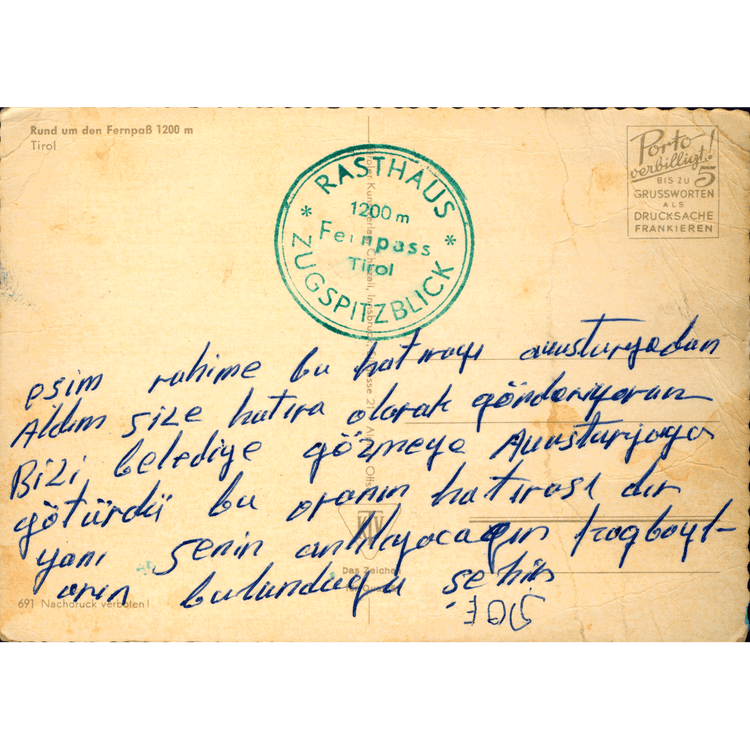 Rund um den Fernpaß 1200 m
Tirol
RASTHAUS
1200 m
Fernpass
Tirol
* ZUGSPITZBLICK *
Porto
verbilligt!
BIS ZU 5
GRUSSWORTEN
ALS
DRUCKSACHE
FRANKIEREN
eşim rahime bu hatırayı auusturyadan
Aldım size hatıra olarak gönderiyorum
Bizi belediye gözmeye Auusturyaya
götürdü bu oranın hatırası dır
yani senin anlıyacağın
arın bulunduğu şehir
Das Zeichen
691 Nachdruck verboten!